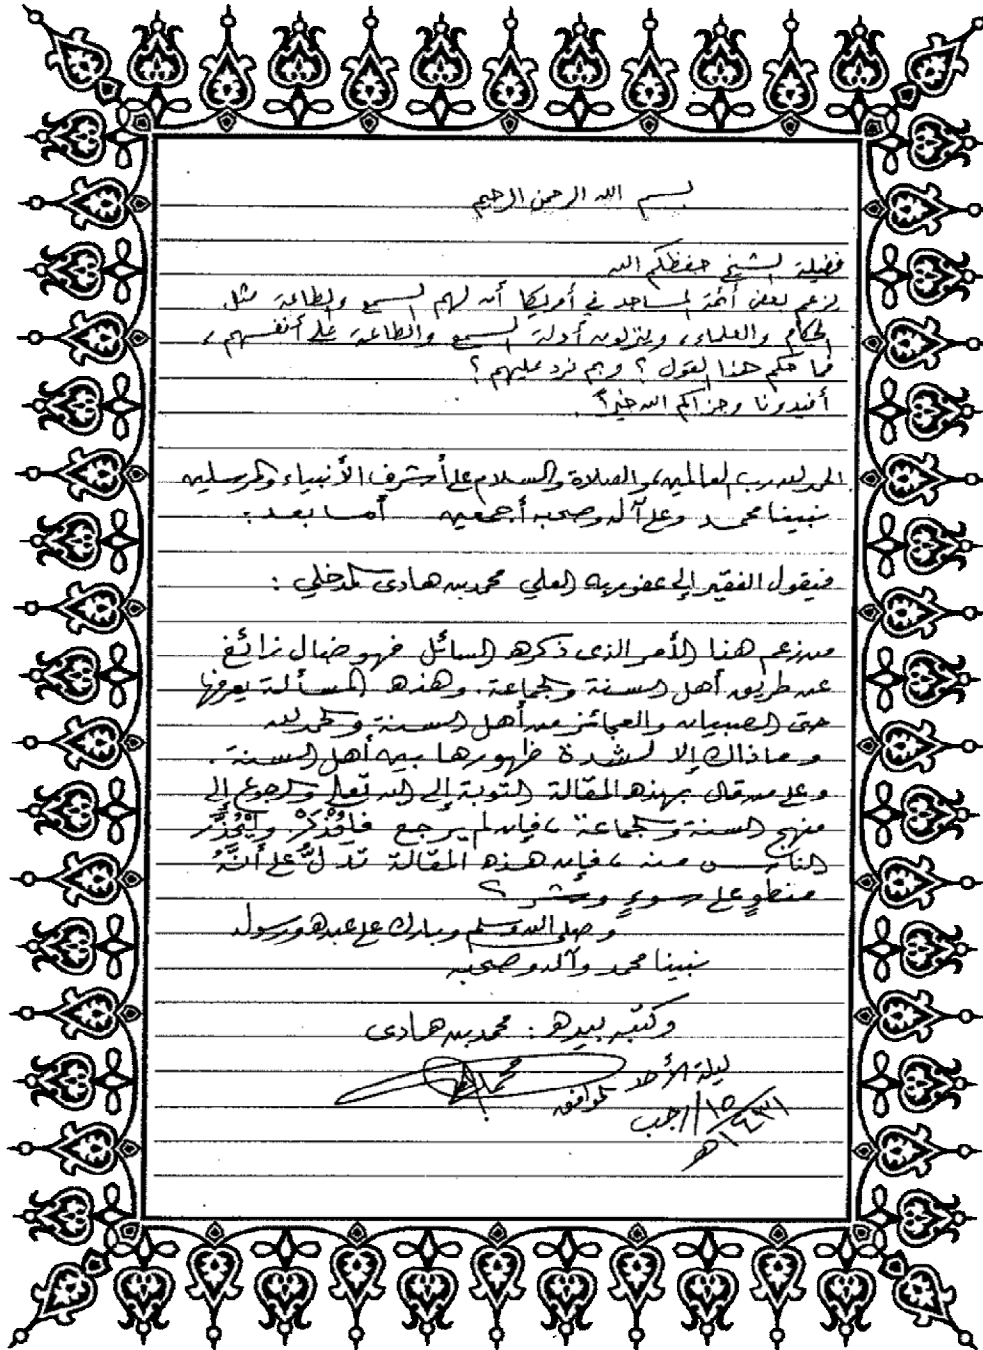 بسم الله الرحمن الرحيم
فضيلة الشيخ حفظكم الله
يزعم بعض أئمة المساجد في أمريكا أن لهم السمع والطاعة مثل
الحكام والعلماء، وينزلون أدلة السمع والطاعة على أنفسهم،
فما حكم هذا القول؟ وبم نرد عليهم؟
أفيدونا وجزاكم الله خيراً.
الحمد لله رب العالمين، والصلاة والسلام على أشرف الأنبياء والمرسلين
نبينا محمد وعلى آله وصحبه أجمعين أما بعد:
فيقول الفقير إلى عفو ربه العلي محمد بن هادي المدخلي:
من زعم هذا الأمر الذي ذكره السائل فهو ضال زائغ
عن طريق أهل السنة والجماعة. وهذه المسألة يعرفها
حتى الصبيان والعجائز من أهل السنة والحمد لله
وما ذاك إلا لشدة ظهورها بين أهل السنة.
وعلى من قال بهذه المقالة التوبة إلى الله تعالى والرجوع إلى
منهج السنة والجماعة، فإن لم يرجع فليُحْذَرْ وليُحَذَّر
الناس منه، فإن هذه المقالة تدلُّ على أنَّهُ
منطوٍ على سوءٍ وشر؟
وصلى الله وسلم وبارك على عبده ورسوله
نبينا محمد وآله وصحبه
وكتبه بيده: محمد بن هادي
ليلة الأحد الموافق
١٥/رجب/١٤٣١هـ